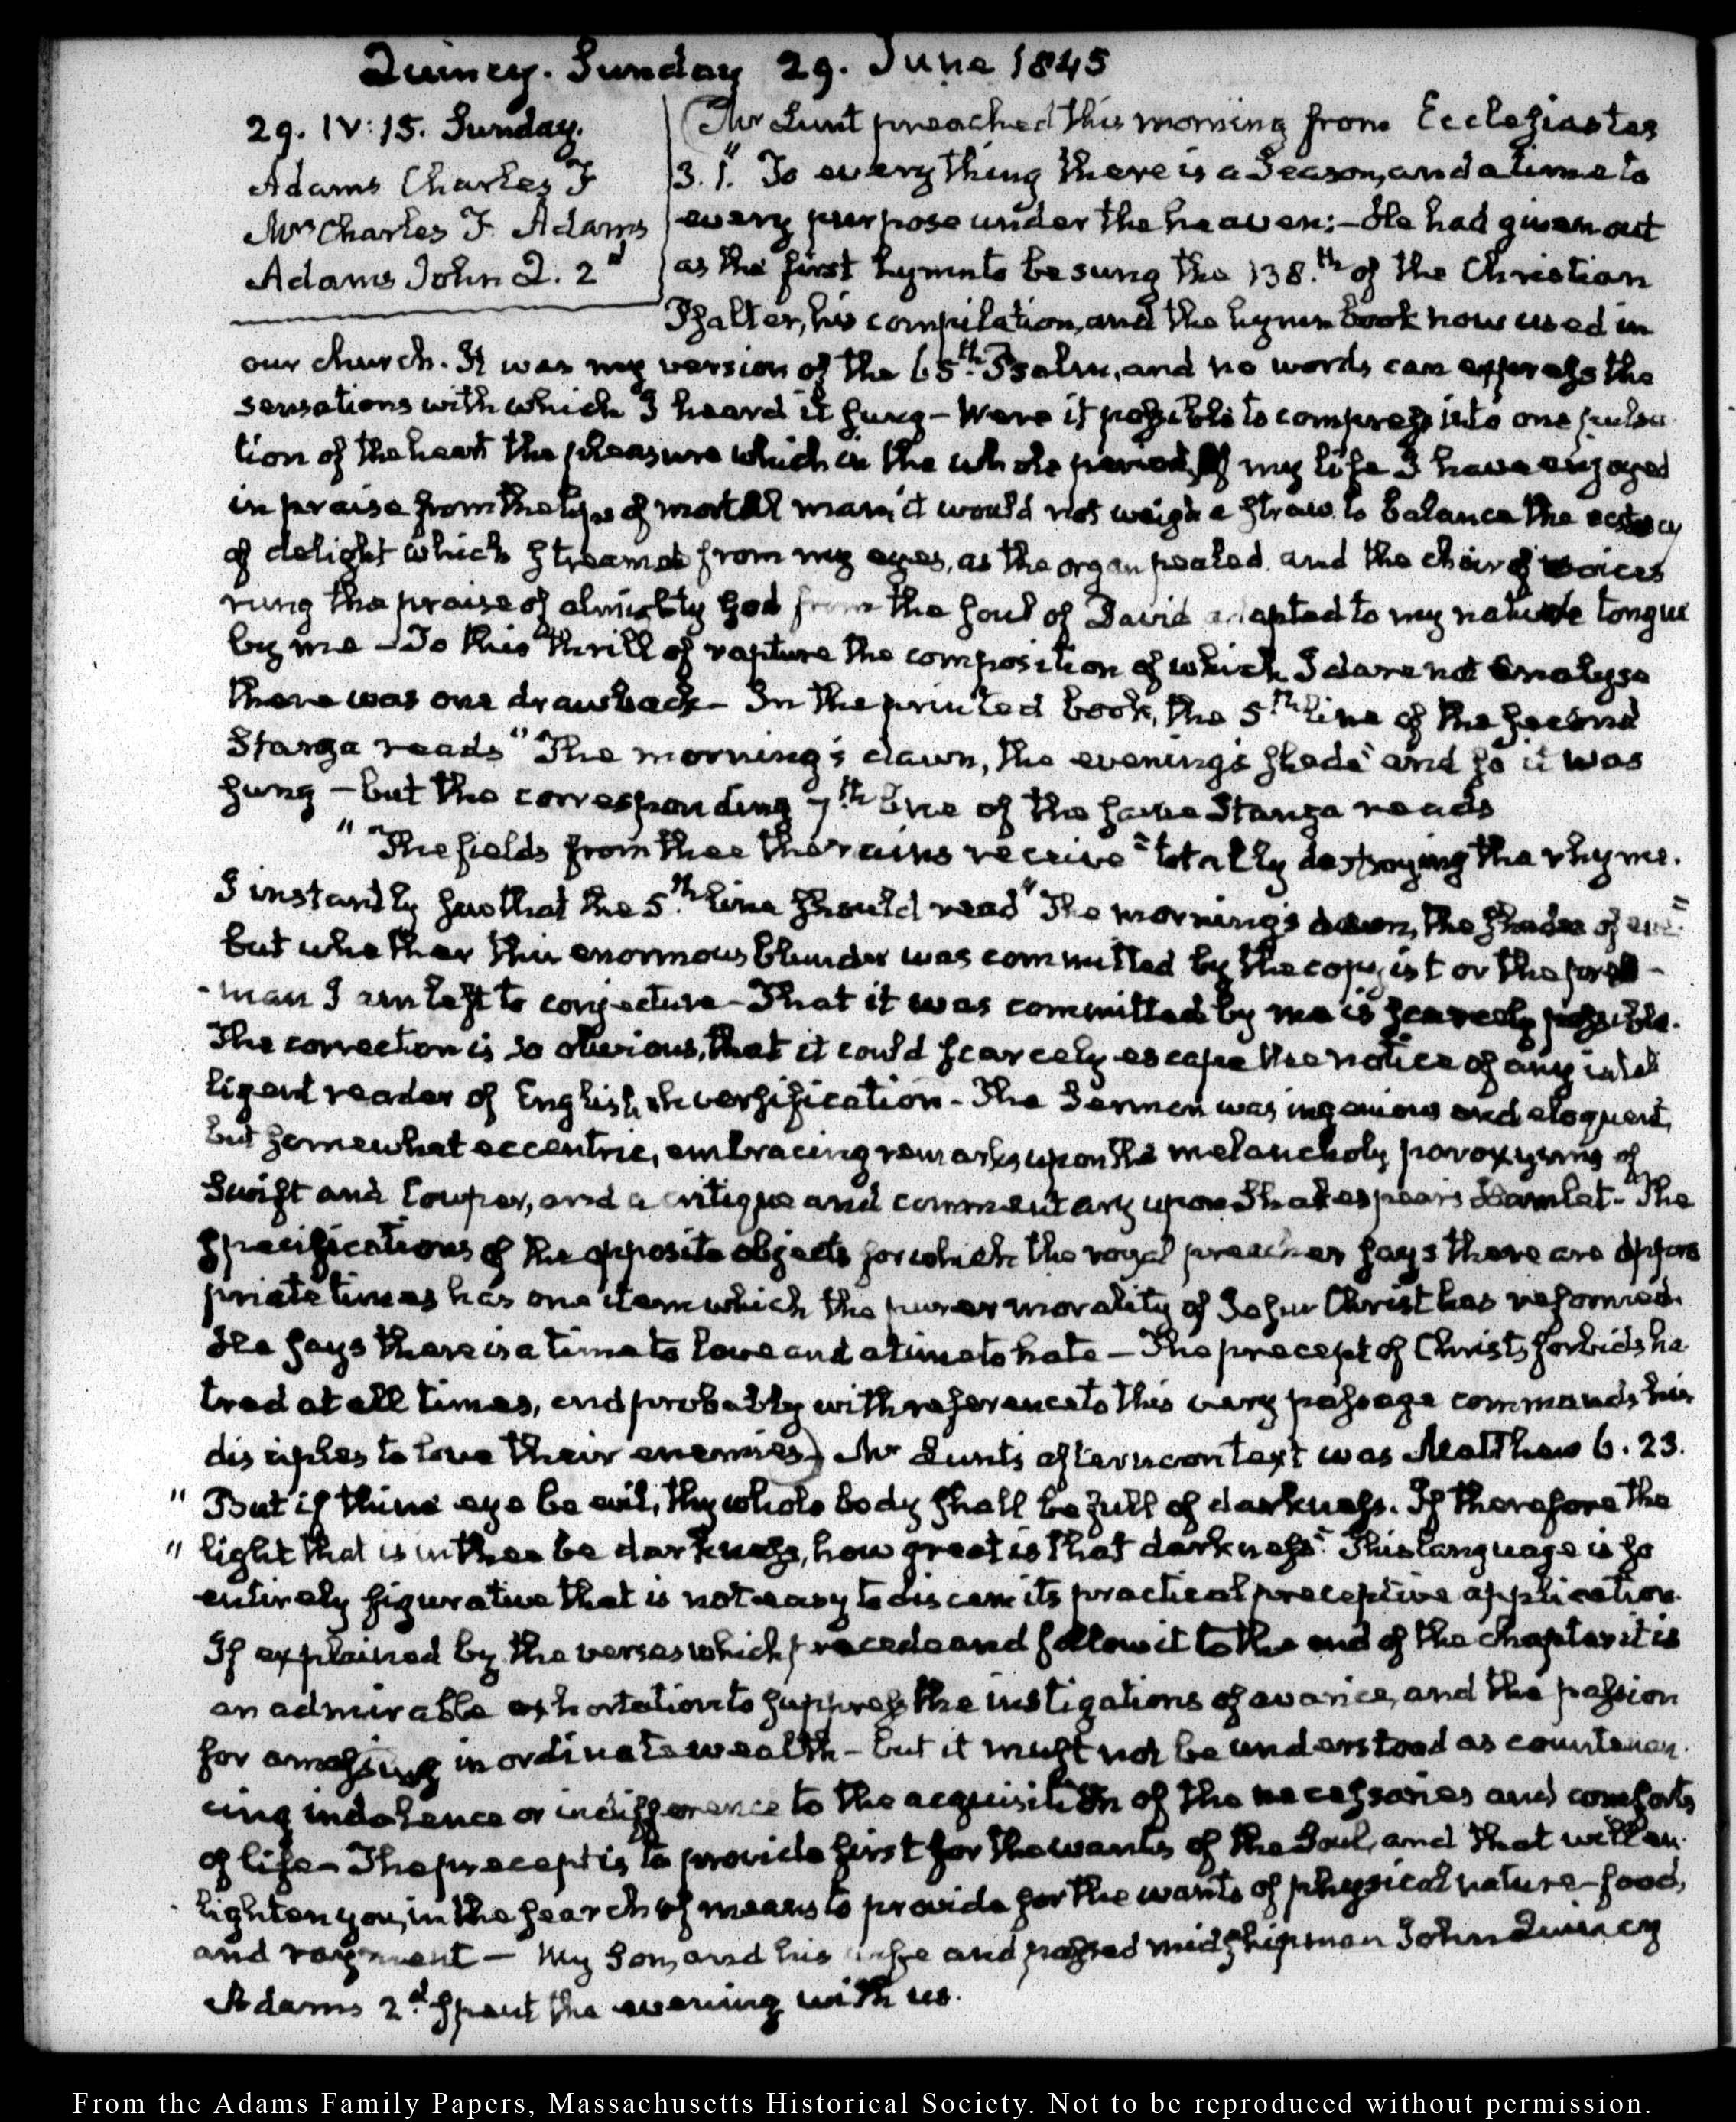 Quincy. Sunday 29. June 1845
29. IV:15. Sunday.
Adams Charles F
Mrs Charles F. Adams
Adams John Q. 2d
(Mr Lunt preached this morning from Ecclesiastes
3. 1. "To every thing there is a Season, and a time to
every purpose under the heaven:- He had given out
as the first hymn to be sung the 138.th of the Christian
Psalter, his compilation, and the hymn book now used in
our church. It was my version of the 65th Psalm, and no words can express the
sensations with which I heard it sung - Were it possible to compress into one pulsa
tion of the heart the pleasure which in the whole period of my life I have enjoyed
in praise from the lips of mortal man, it would not weigh a straw to balance the ecstacy
of delight which streamed from my eyes, as the organ pealed and the choir of voices
rung the praise of almighty God from the soul of David adapted to my native tongue
by me - To this thrill of rapture the composition of which I dare not analyse
there was one drawback - In the printed book, the 5th line of the second
Stanza reads "The morning's dawn, the evening's shade" and so it was
sung - but the corresponding 7th line of the same Stanza reads
"The fields from thee the rains receive" totally destroying the rhyme.
I instantly saw that the 5.th line should read "The morning's dawn, the shades of eve"
but whether this enormous blunder was committed by the copyist or the press-
-man I am left to conjecture - That it was committed by me is scarcely possible.
The correction is so obvious, that it could scarcely escape the notice of any intel
ligent reader of English versification - The Sermon was ingenious and eloquent,
but somewhat eccentric, embracing remarks upon the melancholy paroxysms of
Swift and Cowper, and a critique and commentary upon Shakespear's Hamlet - The
specifications of the opposite objects for which the royal preacher says there are appro
priate times has one item which the purer morality of Jesus Christ has reformed.
He says there is a time to love and a time to hate - The precept of Christ, forbids ha
tred at all times, and probably with reference to this very passage commands his
disciples to love their enemies) Mr Lunt's afternoon text was Matthew 6. 23.
" But if thine eye be evil, thy whole body shall be full of darkness. If therefore the
" light that is in thee be darkness, how great is that darkness". This language is so
entirely figurative that is not easy to discern its practical preceptive application.
If explained by the verses which precede and follow it to the end of the chapter it is
an admirable exhortation to suppress the instigations of avarice, and the passion
for amassing inordinate wealth - but it must not be understood as countenan
cing indolence or indifference to the acquisition of the necessaries and comforts
of life - The precept is to provide first for the wants of the Soul, and that will en
lighten you, in the search of means to provide for the wants of physical nature - food,
and rayment - My Son, and his wife and passed midshipman John Quincy
Adams 2.d spent the evening with us.
From the Adams Family Papers, Massachusetts Historical Society. Not to be reproduced without permission.